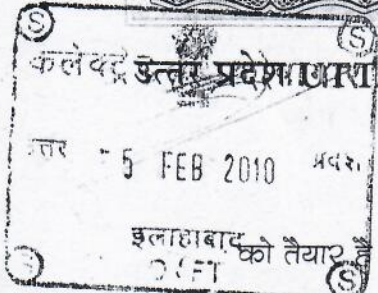 S S
कलेक्ट्रे उत्तर प्रदेश UTT
उत्तर - 5 FEB 2010 प्रदेश
इलाहाबाद को तैयार
S S